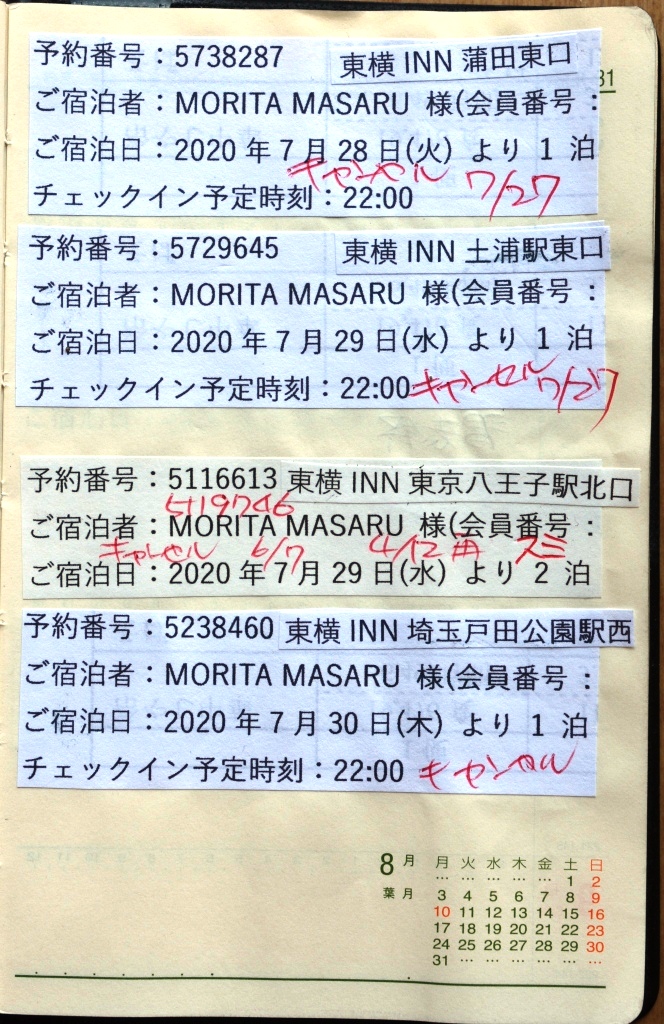 31
予約番号：5738287 東横 INN 蒲田東口
ご宿泊者：MORITA MASARU 様(会員番号：
ご宿泊日：2020 年 7 月 28 日(火) より 1 泊
キャンセル 7/27
チェックイン予定時刻：22:00
予約番号：5729645 東横 INN 土浦駅東口
ご宿泊者：MORITA MASARU 様(会員番号：
ご宿泊日：2020 年 7 月 29 日(水) より 1 泊
チェックイン予定時刻：22:00 キャンセル 7/27
予約番号：5116613 東横 INN 東京八王子駅北口
5119746
ご宿泊者：MORITA MASARU 様(会員番号：
キャンセル 6/7 4/12 再 スミ
ご宿泊日：2020 年 7 月 29 日(水) より 2 泊
予約番号：5238460 東横 INN 埼玉戸田公園駅西
ご宿泊者：MORITA MASARU 様(会員番号：
ご宿泊日：2020 年 7 月 30 日(木) より 1 泊
チェックイン予定時刻：22:00 キャンセル
8 月 月 火 水 木 金 土 日
… … … … … 1 2
葉 月 3 4 5 6 7 8 9
10 11 12 13 14 15 16
17 18 19 20 21 22 23
24 25 26 27 28 29 30
31 … … … … … …